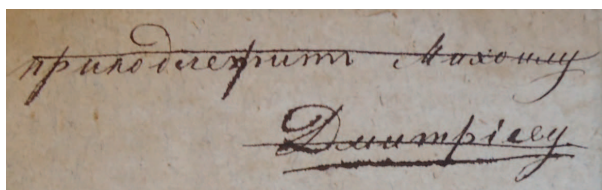 принадлежитъ Михаилу
Дмитріеву.